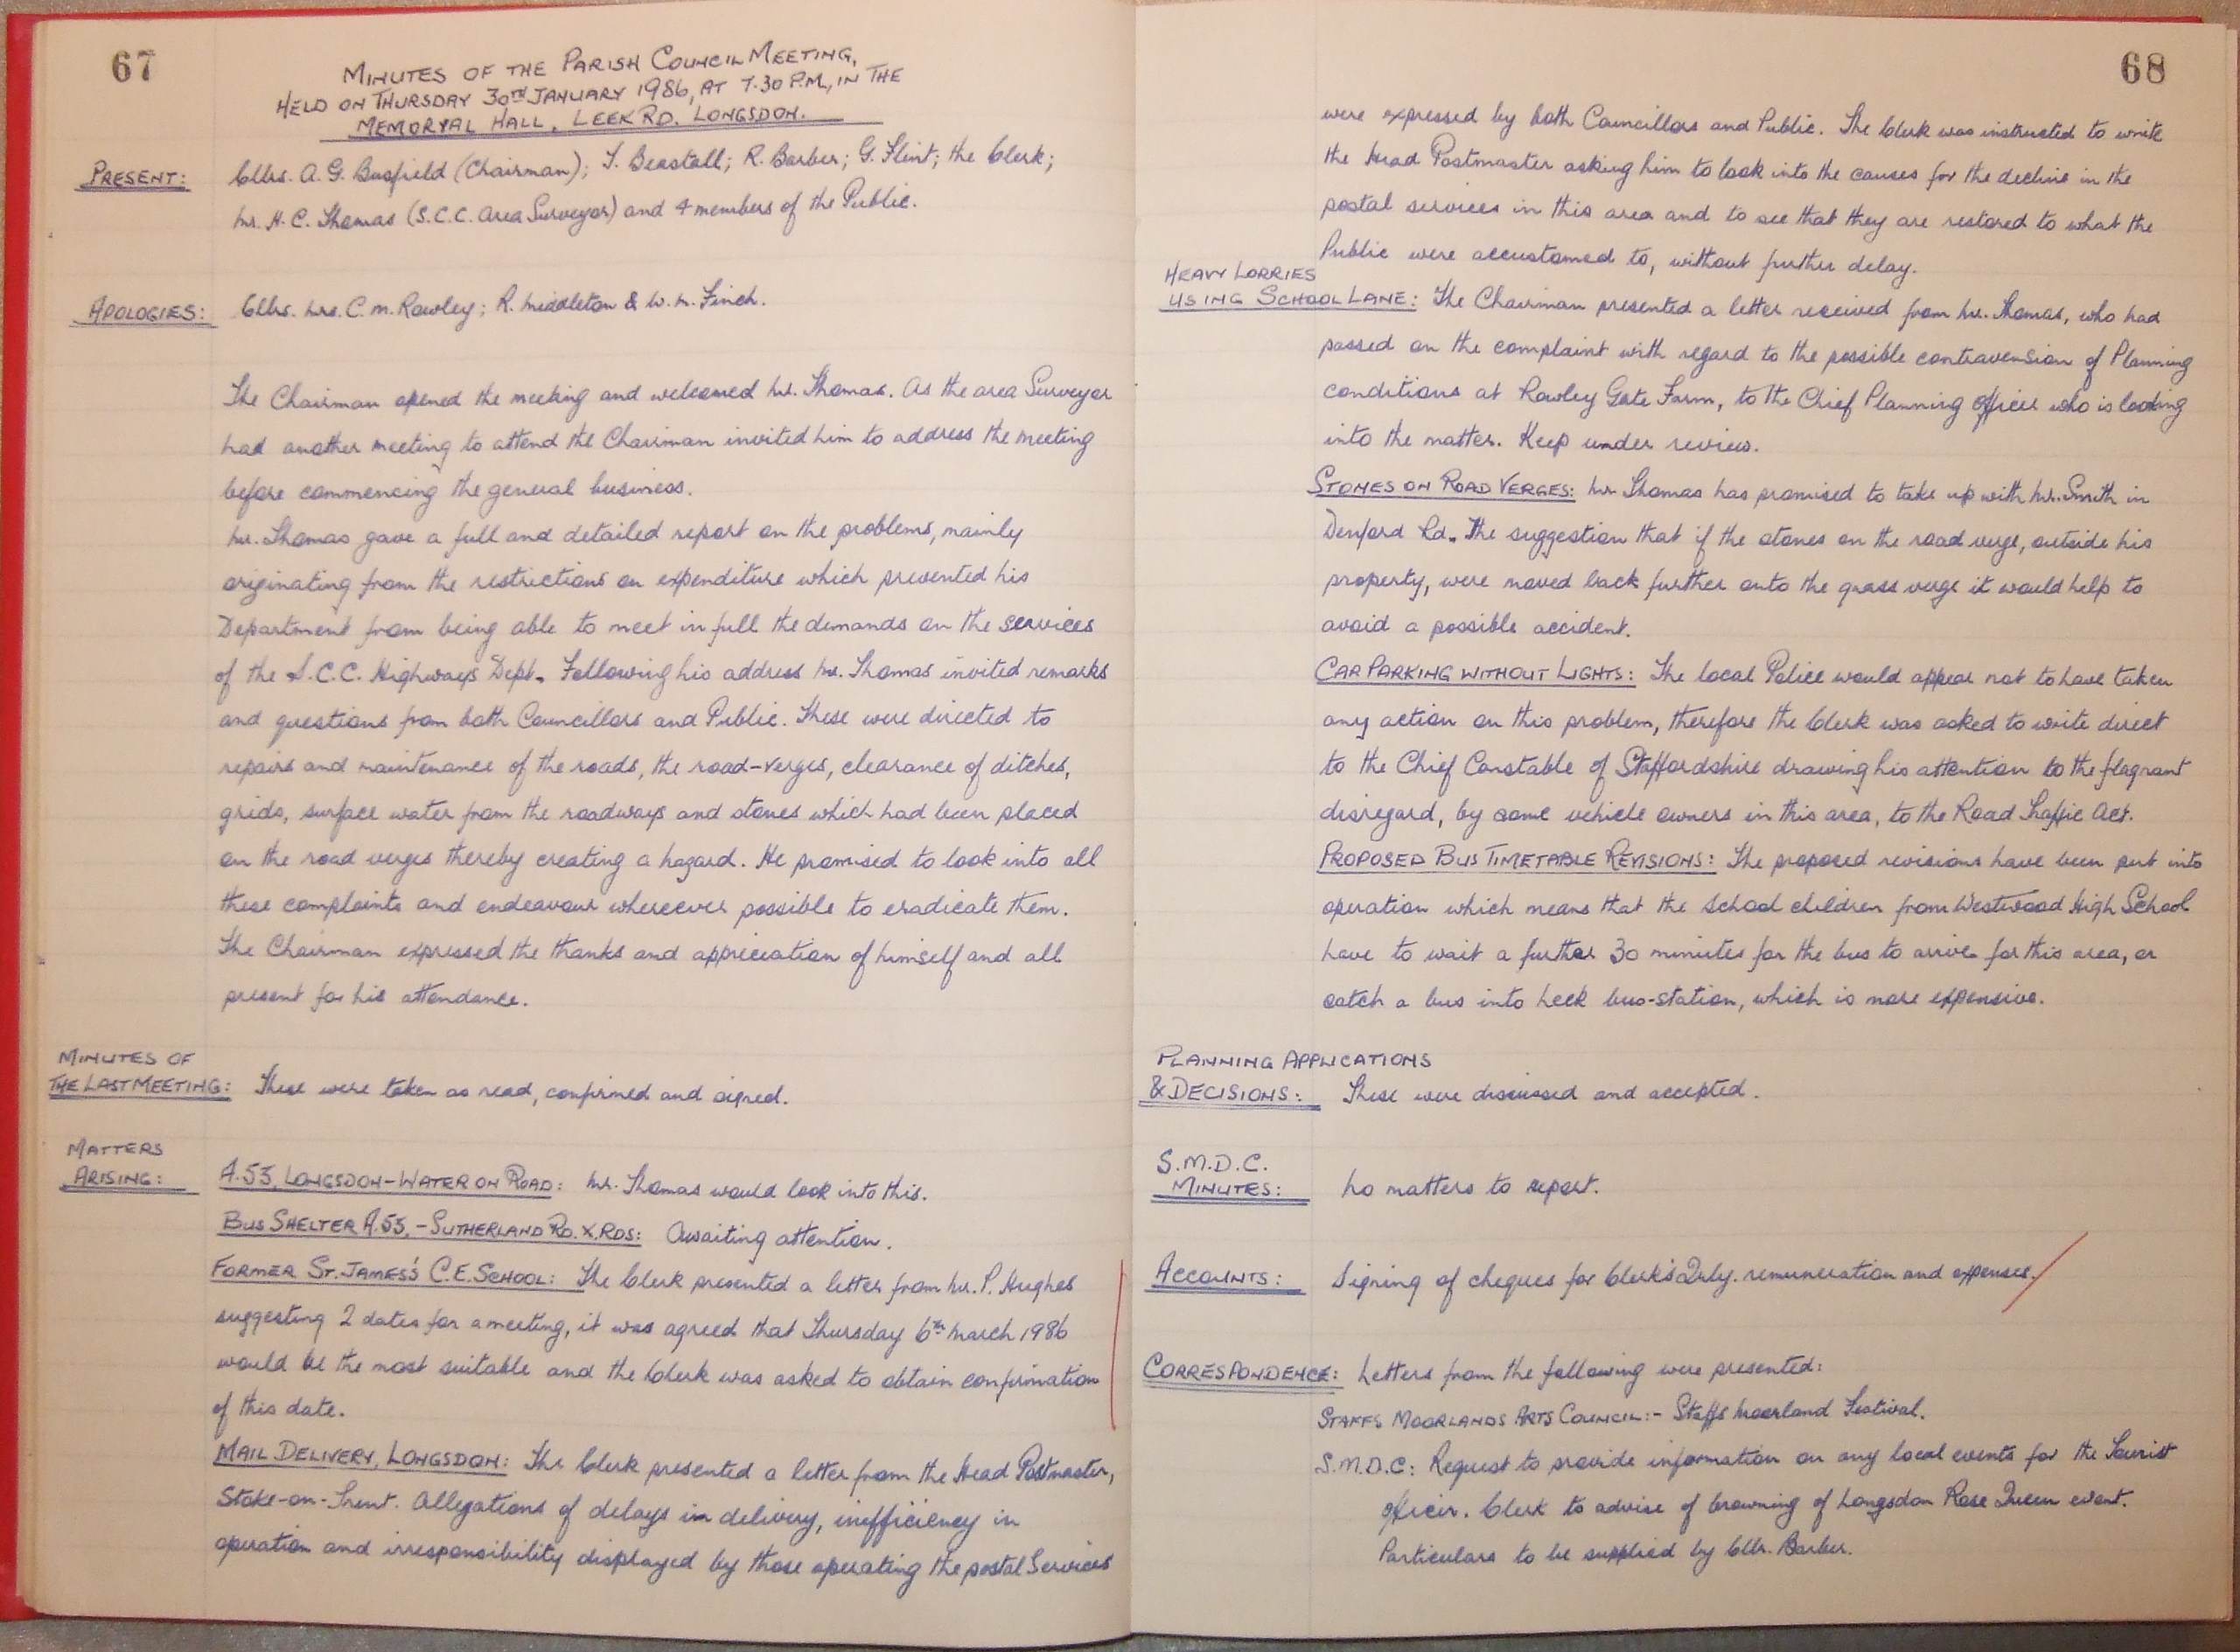 67
MINUTES OF THE PARISH COUNCIL MEETING,
HELD ON THURSDAY 30TH JANUARY 1986, AT 7.30 P.M., IN THE
MEMORYAL HALL, LEEK RD. LONGSDON.
PRESENT: Cllrs. A. G. Busfield (Chairman); T. Beastall; R. Barber; G. Flint; the Clerk;
Mr. H. C. Thomas (S.C.C. Area Surveyor) and 4 members of the Public.
APOLOGIES: Cllrs. Mrs. C. M. Rowley; R. Middleton & W. M. Finch.
The Chairman opened the meeting and welcomed Mr. Thomas. As the area Surveyor
had another meeting to attend the Chairman invited him to address the meeting
before commencing the general business.
Mr. Thomas gave a full and detailed report on the problems, mainly
originating from the restrictions on expenditure which prevented his
Department from being able to meet in full the demands on the services
of the S.C.C. Highways Dept. Following his address Mr. Thomas invited remarks
and questions from both Councillors and Public. These were directed to
repairs and maintenance of the roads, the road-verges, clearance of ditches,
grids, surface water from the roadways and stones which had been placed
on the road verges thereby creating a hazard. He promised to look into all
these complaints and endeavour whereever possible to eradicate them.
The Chairman expressed the thanks and appreciation of himself and all
present for his attendance.
MINUTES OF
THE LAST MEETING: These were taken as read, confirmed and signed.
MATTERS
ARISING: A.53, LONGSDON-WATER ON ROAD: Mr. Thomas would look into this.
BUS SHELTER A.53,-SUTHERLAND RD. X.RDS: Awaiting attention.
FORMER ST. JAMES'S C.E. SCHOOL: The Clerk presented a letter from Mr. P. Hughes
suggesting 2 dates for a meeting, it was agreed that Thursday 6th March 1986
would be the most suitable and the Clerk was asked to obtain confirmation
of this date.
MAIL DELIVERY, LONGSDON: The Clerk presented a letter from the Head Postmaster,
Stoke-on-Trent. Allegations of delays in delivery, inefficiency in
operation and irresponsibility displayed by those operating the postal Services
68
were expressed by both Councillors and Public. The Clerk was instructed to write
the Head Postmaster asking him to look into the causes for the decline in the
postal services in this area and to see that they are restored to what the
Public were accustomed to, without further delay.
HEAVY LORRIES
USING SCHOOL LANE: The Chairman presented a letter received from Mr. Thomas, who had
passed on the complaint with regard to the possible contravension of Planning
conditions at Rowley Gate Farm, to the Chief Planning Officer who is looking
into the matter. Keep under review.
STONES ON ROAD VERGES: Mr. Thomas has promised to take up with Mr. Smith in
Denford Rd. The suggestion that if the stones on the road verge, outside his
property, were moved back further onto the grass verge it would help to
avoid a possible accident.
CAR PARKING WITHOUT LIGHTS: The local Police would appear not to have taken
any action on this problem, therefore the Clerk was asked to write direct
to the Chief Constable of Staffordshire drawing his attention to the flagrant
disregard, by some vehicle owners in this area, to the Road Traffic Act.
PROPOSED BUS TIMETABLE REVISIONS: The proposed revisions have been put into
operation which means that the school children from Westwood High School
have to wait a further 30 minutes for the bus to arrive for this area, or
catch a bus into Leek bus-station, which is more expensive.
PLANNING APPLICATIONS
& DECISIONS: These were discussed and accepted.
S.M.D.C.
MINUTES: No matters to report.
ACCOUNTS: Signing of cheques for Clerk's Qrly. remuneration and expenses.
CORRESPONDENCE: Letters from the following were presented:
STAFFS MOORLANDS ARTS COUNCIL:- Staffs Moorland Festival.
S.M.D.C: Request to provide information on any local events for the Tourist
Officer. Clerk to advise of Crowning of Longsdon Rose Queen event.
Particulars to be supplied by Cllr. Barber.